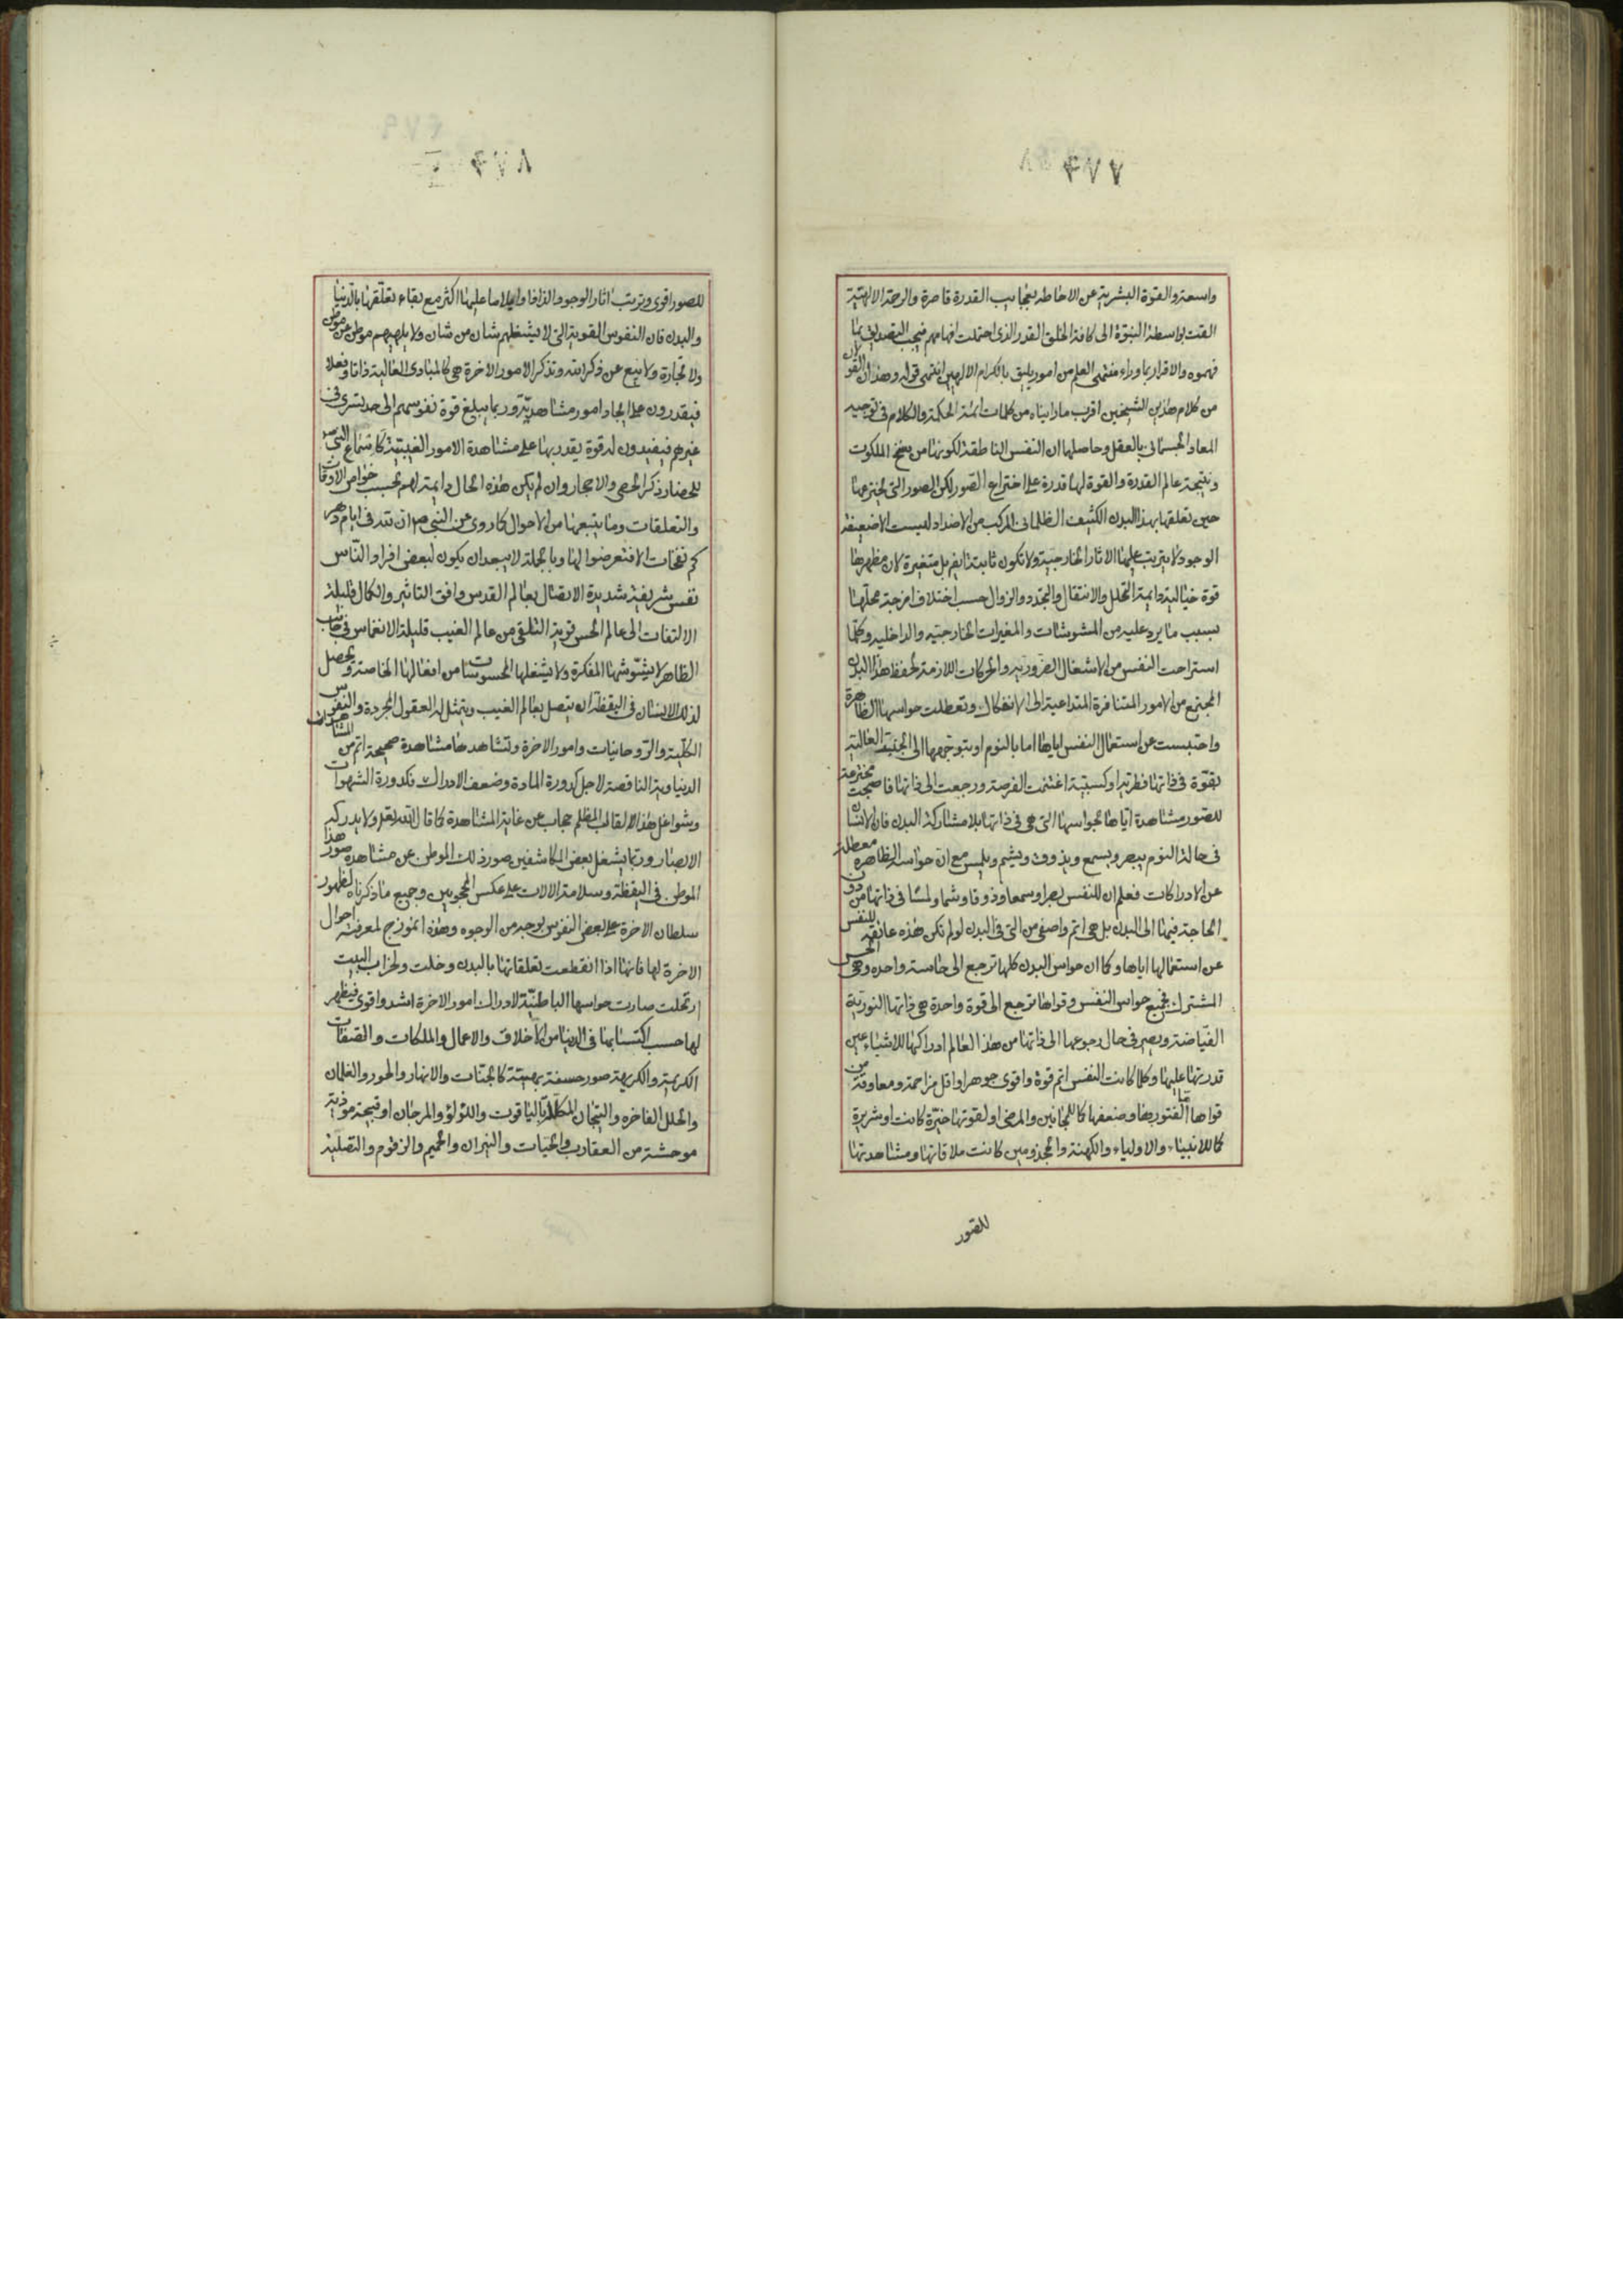 ٤٧٧
واسعة والقوة البشرية عن الاحاطه بعجايب القدرة قاصرة والرحمة الالهية
القت بواسطة النبوة الى كافة الخلق القدر الذى احتملت افهامهم فيجب التصديق بما
فهموه والاقرار بما وراء منتهى العلم من امور يليق بالكرام الالهيين انتهى قوله وهذان القولان
من كلام هذين الشيخين اقرب ما رايناه من كلمات ائمة الحكمة والكلام فى توجيه
المعاد الجسمانى بالعقل وحاصلها ان النفس الناطقة لكونها من سنخ الملكوت
ونتيجة عالم القدرة والقوة لها قدرة على اختراع الصور لكن الصور التى تخترعها
حين تعلقها بهذا البدن الكثيف الظلمانى المركب من الاضداد ليست الا ضعيفة
الوجود لا يترتب عليها الاثار الخارجية ولا تكون ثابتة ايضا بل متغيرة لان مظهرها
قوة خيالية دايمة التحلل والانتقال والتجدد والزوال حسب اختلاف امزجة محلها
بسبب ما يرد عليه من المشوشات والمغيرات الخارجيه والداخليه وكلما
استراحت النفس من الاشغال الضروريه والحركات اللازمة لحفظ هذا البدن
المجتمع من الامور المتنافرة المتداعية الى الانفكاك وتعطلت حواسها الظاهرة
واحتبست عن استعمال النفس اياها اما بالنوم او بتوجهها الى الجنبة العالية
بقوة فى ذاتها فطرية او كسبية اغتنمت الفرصة ورجعت الى ذاتها فاصبحت مخترعة
للصور مشاهدة اياها بحواسها التى هى فى ذاتها بلا مشاركة البدن فان الانسان
فى حالة النوم يبصر ويسمع ويذوق ويشم ويلمس مع ان حواسه الظاهرة معطلة
عن الادراكات فعلم ان للنفس بصرا وسمعا وذوقا وشما ولمسا فى ذاتها من دون
الحاجة فيها الى البدن بل هى اتم واصفى من التى فى البدن لو لم تكن هذه عائقة للنفس
عن استعمالها اياها وكما ان حواس البدن كلها ترجع الى حاسة واحده وهى الحس
المشترك فجميع حواس النفس وقواها ترجع الى قوة واحدة هى ذاتها النورية
الفياضة ويصير فى حال رجوعها الى ذاتها من هذا العالم ادراكها للاشياء عين
قدرتها عليها وكلما كانت النفس اتم قوة واقوى جوهرا واقل مزاحمة ومعاوقة من
قواها اما لفتورها وضعفها كما للمجانين والمرضى او لقوتها خيرة كانت او شريرة
كما للانبياء والاولياء والكهنة والمجذومين كانت ملاقاتها ومشاهدتها
للصور
٤٧٨
للصور اقوى وترتب اثار الوجود والذاذا وايلاما عليها اكثر مع بقاء تعلقها بالدنيا
والبدن فان النفوس القوية التى لا يشغلهم شان من شان ولا يلهيهم موطن عن موطن
ولا تجارة ولا بيع عن ذكر الله وتذكر الامور الاخرة هى كالمبادى العالية ذاتا وفعلا
فيقدرون على ايجاد امور مشاهدية وربما يبلغ قوة نفوسهم الى حد تسرى فى
غيرهم فيفيدون له قوة يقدر بها على مشاهدة الامور الغيبية كاسماع النبى ص
للحضار ذكر الحصى والاحجار وان لم يكن هذه الحال دايمة لهم بحسب خواص الاوقات
والتعلقات وما يتبعها من الاحوال كما روى عن النبى ص ان لله فى ايام دهر
كم نفحات الا فتعرضوا لها وبالجملة لا يبعد ان يكون لبعض افراد الناس
نفس شريفة شديدة الاتصال بعالم القدس وافق التاثير والكمال قليلة
الالتفات الى عالم الحس قوية التلقى من عالم الغيب قليلة الانغماس فى جانب
الظاهر لا يشوشها المفكرة ولا يشغلها المحسوسات من افعالها الخاصة ويحصل
لذلك الانسان فى اليقظة ان يتصل بعالم الغيب ويتمثل له العقول المجردة والنفوس
الكلية والروحانيات وامور الاخرة وتشاهدها مشاهدة صحيحة اتم من المشاهدات
الدنياوية الناقصة لاجل كدورة المادة وضعف الادراك فكدورة الشهوات
وشواغل هذا القالب المظلم حجاب عن غاية المشاهدة كما قال الله تعالى ولا يدركه
الابصار وربما يشغل بعض المكاشفين صور ذلك الموطن عن مشاهدة صور هذا
الموطن فى اليقظة وسلامة الالات على عكس المحجوبين وجميع ما ذكرناه لظهور
سلطان الاخرة على بعض النفوس بوجه من الوجوه وهذه انموذج لمعرفة احوال
الاخرة لها فانها اذا انقطعت تعلقاتها بالبدن وخلت ولخراب البيت
ارتحلت صارت حواسها الباطنية لادراك امور الاخرة اشد واقوى فيظهر
لها حسب اكتسابها فى الدنيا من الاخلاق والاعمال والملكات والصفات
الكريمة والكريهة صور حسنة بهية كالجنات والانهار والحور والغلمان
والحلل الفاخره والتيجان المكللة بالياقوت واللؤلؤ والمرجان او قبيحة موذية
موحشة من العقارب والحيات والنيران والحميم والزقوم والتصلية